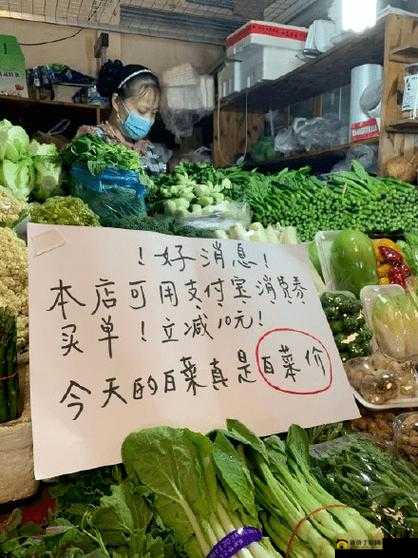 ！好消息！
本店可用支付宝消费券
买单！立减10元！
今天的白菜真是白菜价